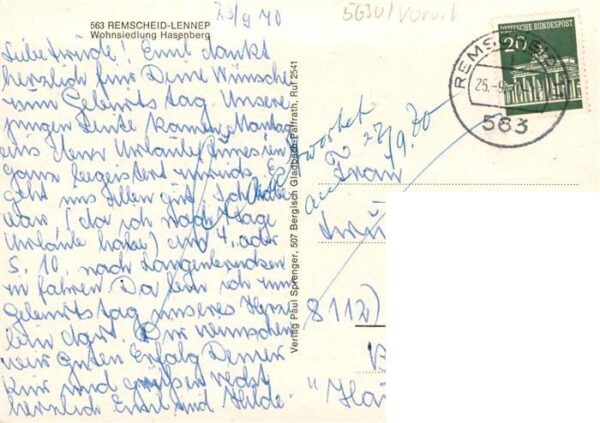 23/9 70
5630/
563 REMSCHEID-LENNEP
Wohnsiedlung Hasenberg
DEUTSCHE BUNDESPOST
20
REMSCHEID
25.-9.
563
Liebe Trude! Emil dankt
herzlich für Deine Wünsche
zum Geburtstag. Unsere
jungen Leute kamen Montag
aus ihrem Urlaub
ganz begeistert zurück. Es
geht uns allen gut. Ich habe
vor (da ich noch Tage
Urlaub habe) am 4. oder
5. 10. nach
zu fahren. Da bin ich zum
Geburtstag unseres
lein dort. Dir wünschen
wir guten Erfolg Deiner
Kur und grüßen recht
herzlich Emil und Hilde
beantwortet
am 27/9.70
Verlag Paul Sprenger, 507 Bergisch Gladbach-Paffrath, Ruf 2541
Frau
8112)